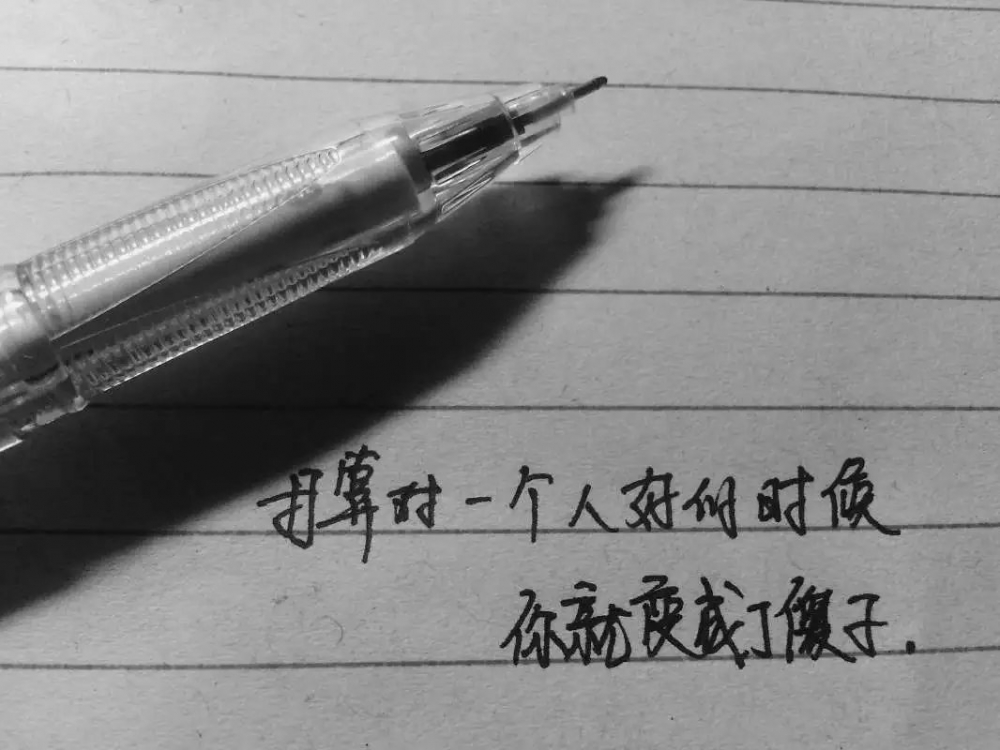 打算对一个人好的时候
你就变成了傻子.